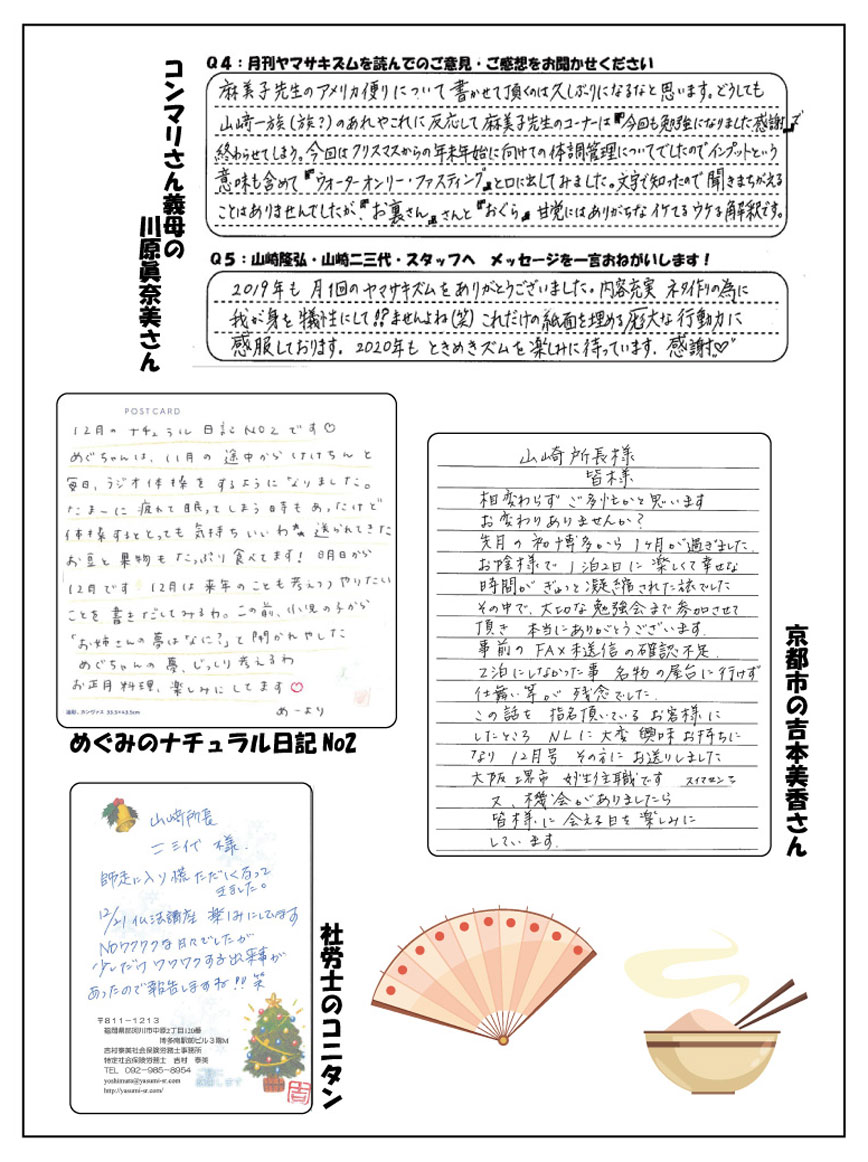 コンマリさん義母の
川原眞奈美さん
Q4：月刊ヤマサキズムを読んでのご意見・ご感想をお聞かせください
麻美子先生のアメリカ便りについて書かせて頂くのは久しぶりになるなと思います。どうしても
山崎一族(族?)のあれやこれに反応して麻美子先生のコーナーは『今回も勉強になりました感謝』で
終わらせてしまう。今回はクリスマスからの年末年始に向けての体調管理についてでしたのでインプットという
意味も含めて『ウォーターオンリー・ファスティング』と口に出してみました。文字で知ったので聞きまちがえる
ことはありませんでしたが、『お裏さん』さんと『おぐら』甘党にはありがちなイケてるウケる解釈です。
Q5：山崎隆弘・山崎二三代・スタッフへ　メッセージを一言おねがいします！
2019年も月1回のヤマサキズムをありがとうございました。内容充実 ネタ作りの為に
我が身を犠牲にして!?ませんよね(笑)これだけの紙面を埋める厖大な行動力に
感服しております。2020年もときめきズムを楽しみに待っています。感謝♡
POSTCARD
12月のナチュラル日記NO2です♡
めぐちゃんは、11月の途中からけいちんと
毎日、ラジオ体操をするようになりました。
たまーに疲れて眠ってしまう時もあったけど
体操するととっても気持ちいいわ 送られてきた
お豆と果物もたっぷり食べてます！明日から
12月です 12月は来年のことも考えつつやりたい
ことを書きだしてみるわ。この前、小児の子から
「お姉さんの夢はなに?」と聞かれやした
めぐちゃんの夢、じっくり考えるわ
お正月料理、楽しみにしてます♡
油彩、カンヴァス 33.5×45.5cm
めーより
めぐみのナチュラル日記 No2
山崎所長様
皆様
相変わらずご多忙かと思います
お変わりありませんか?
先月の和博多から1ヶ月が過ぎました
お陰様で1泊2日に楽しくて幸せな
時間がぎゅっと凝縮された旅でした
その中で、大切な勉強会まで参加させて
頂き 本当にありがとうございます
事前のFAX未送信の確認不足
2泊にしなかった事 名物の屋台に行けず
仕舞い等が残念でした
この話を指名頂いているお客様に
したところ NLに大変興味お持ちに
なり12月号 その方にお送りしました
大阪 堺市 妙生住職です スイマセンm
又、機会がありましたら
皆様に会える日を楽しみに
しています
京都市の吉本美香さん
山崎所長
二三代 様
師走に入り慌ただしくなって
きました。
12/21仏法講座 楽しみにしてます
NOワクワクな日々でしたが
少しだけワクワクする出来事が
あったので報告しますね!! 笑
〒811-1213
福岡県那珂川市中原2丁目120番
博多南駅前ビル3階M
吉村泰美社会保険労務士事務所
特定社会保険労務士　吉村　泰美
TEL 092-985-8954
yoshimura@yasumi-sr.com
http://yasumi-sr.com/
吉
社労士のコニタン